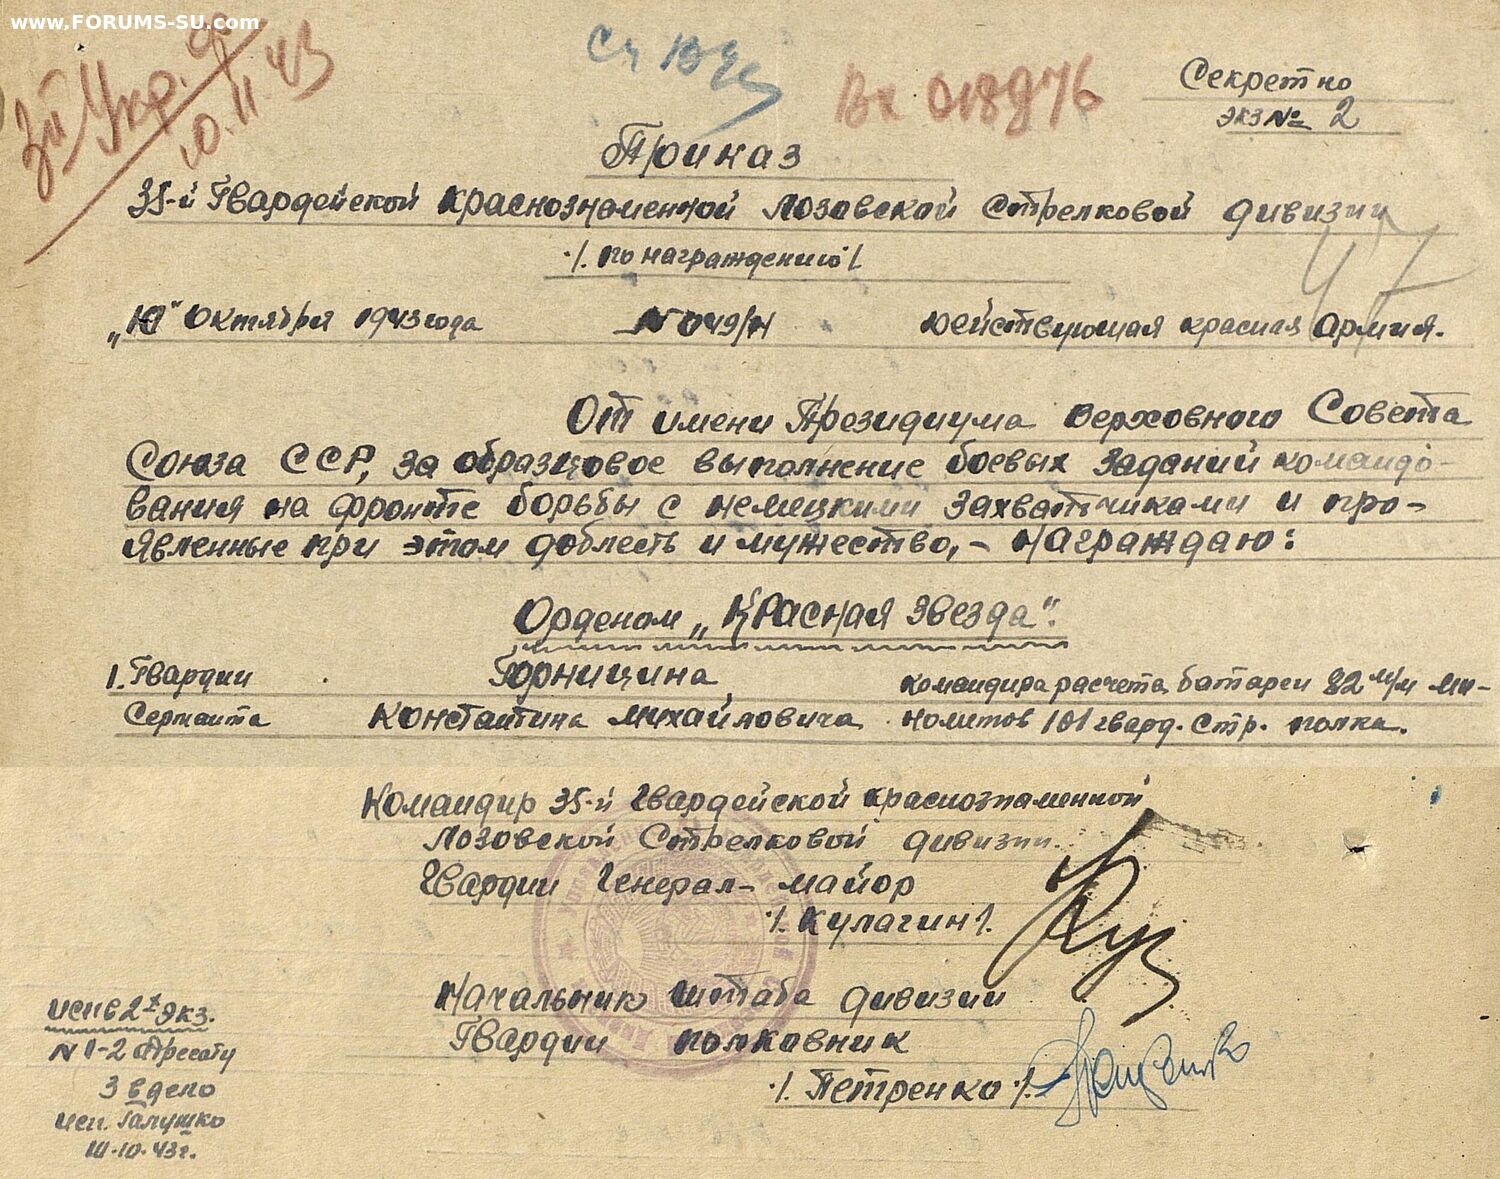 www.FORUMS-SU.com
3й Укр. фр
10.11.43
Вх 018976
Секретно
экз № 2
Приказ
35-й Гвардейской краснознаменной Лозовской стрелковой дивизии
·/. по награждению /.
47
„10" Октября 1943 года № 049/н Действующая красная Армия.
От имени Президиума Верховного Совета
Союза ССР, за образцовое выполнение боевых заданий командо-
вания на фронте борьбы с немецкими захватчиками и про-
явленные при этом доблесть и мужество, - Награждаю:
Орденом „Красная звезда".
1. Гвардии Горницина командира расчета батареи 82 м/м ми-
Сержанта Константина Михайловича номитов 101 гвард. Стр. полка.
Командир 35-й Гвардейской краснознаменной
Лозовской Стрелковой дивизии
Гвардии Генерал-майор
·/. Кулагин /.
Начальник штаба дивизии
Гвардии полковник
·/. Петренко ·/.
исп в 2х экз.
№ 1-2 адресату
3 в дело
исп. Галушко
10.43г.